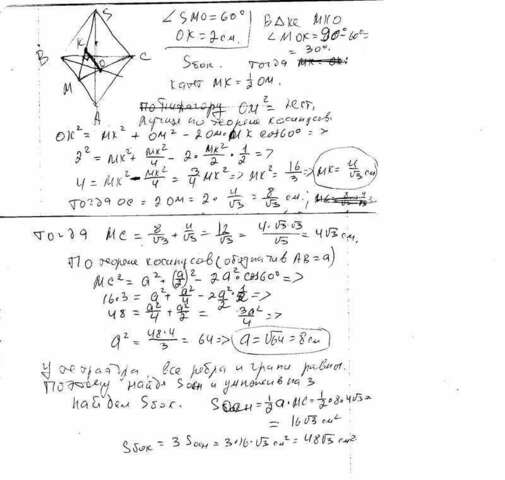 S
K
B
C
M
O
A
∠SMO=60°
OK=2см.
Sбок.
В Δке МКО
∠МОК=90°-60°=
=30°.
Тогда
катет МК=½ОМ.
По Пифагору ОМ²=
Лучше по теореме косинусов.
OK²=MK²+OM²-2OM·MK cos60°=>
2²=MK²+MK²/4-2·MK²/2·1/2=>
4=MK²-MK²/4=3/4MK²=>MK²=16/3=>MK=4/√3см
Тогда OC=2OM=2·4/√3=8/√3 см.;
Тогда MC=8/√3+4/√3=12/√3=4·√3·√3/√3=4√3см.
По теореме косинусов (обозначив AB=a)
MC²=a²+(a/2)²-2a²·cos60°=>
16·3=a²+a²/4-2a²/2·1/2=>
48=a²/4+a²/2=3a²/4=>
a²=48·4/3=64=>a=√64=8см
У тетраэдра все ребра и грани равны.
Поэтому найдя Sосн и умножив на 3
найдем Sбок.
Sосн=½a·MC=½·8·4√3=
=16√3см²
Sбок=3Sосн=3·16·√3см²=48√3см²